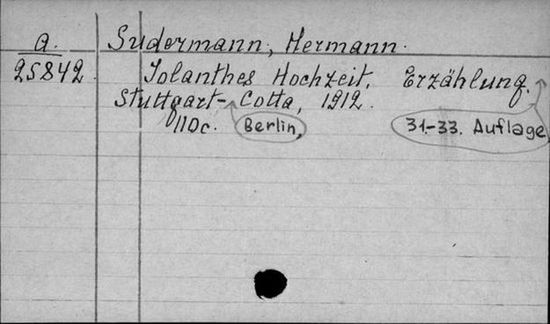 a. Sudermann, Hermann.
25842. Jolanthes Hochzeit. Erzählung.
Stuttgart- Cotta, 1912.
110c. Berlin, 31.-33. Auflage